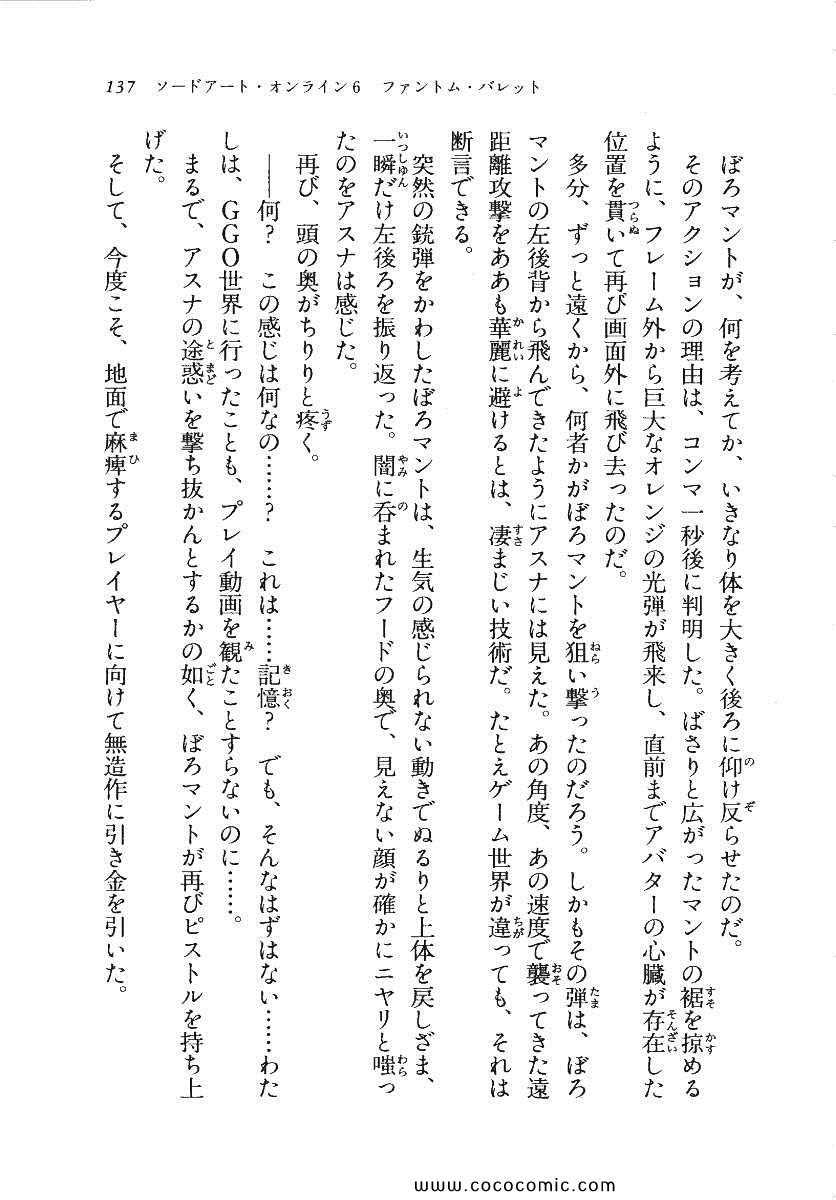 137　ソードアート・オンライン6　ファントム・バレット
ぼろマントが、何を考えてか、いきなり体を大きく後ろに仰け反らせたのだ。
そのアクションの理由は、コンマ一秒後に判明した。ばさりと広がったマントの裾を掠める
ように、フレーム外から巨大なオレンジの光弾が飛来し、直前までアバターの心臓が存在した
位置を貫いて再び画面外に飛び去ったのだ。
多分、ずっと遠くから、何者かがぼろマントを狙い撃ったのだろう。しかもその弾は、ぼろ
マントの左後背から飛んできたようにアスナには見えた。あの角度、あの速度で襲ってきた遠
距離攻撃をああも華麗に避けるとは、凄まじい技術だ。たとえゲーム世界が違っても、それは
断言できる。
突然の銃弾をかわしたぼろマントは、生気の感じられない動きでぬるりと上体を戻しざま、
一瞬だけ左後ろを振り返った。闇に呑まれたフードの奥で、見えない顔が確かにニヤリと嗤っ
たのをアスナは感じた。
再び、頭の奥がちりりと疼く。
――何？　この感じは何なの……？　これは……記憶？　でも、そんなはずはない……わた
しは、ＧＧＯ世界に行ったことも、プレイ動画を観たことすらないのに……。
まるで、アスナの途惑いを撃ち抜かんとするかの如く、ぼろマントが再びピストルを持ち上
げた。
そして、今度こそ、地面で麻痺するプレイヤーに向けて無造作に引き金を引いた。
www.cococomic.com/